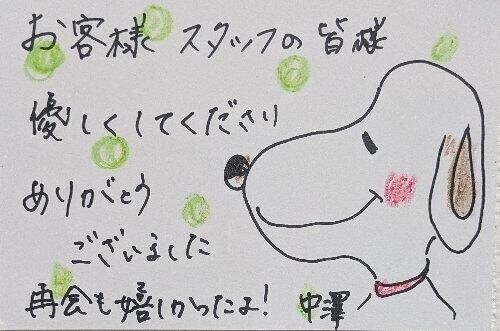 お客様 スタッフの皆様
優しくしてくださり
ありがとう
ございました
再会も嬉しかったよ! 中澤